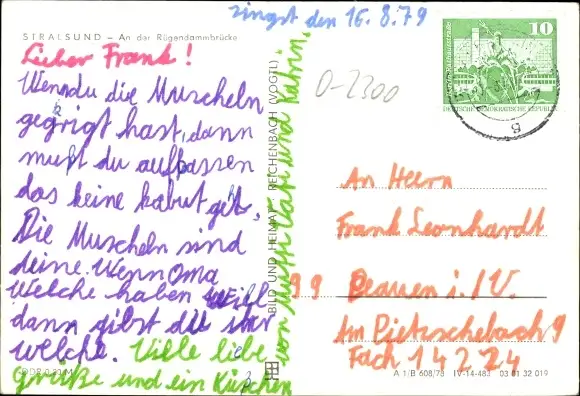 zingst den 16.8.79
STRALSUND – An der Rügendammbrücke
Lieber Frank!
Wenn du die Muscheln
gegrigt hast, dann
must du aufpassen
das keine kabut geht.
Die Muscheln sind
deine. Wenn Oma
welche haben will
dann gibst du ihr
welche. Viele liebe
Grüße und ein Küschen
von Mutti Vati und Katrin.
0-2300
BILD UND HEIMAT REICHENBACH (VOGTL)
10
DEUTSCHE DEMOKRATISCHE REPUBLIK
An Herrn
Frank Leonhardt
99 Plauen i./V.
Am Pietzschebach 9
Fach 14224
DDR 0,20 M
A 1/B 608/78 IV-14-483 03 81 32 019